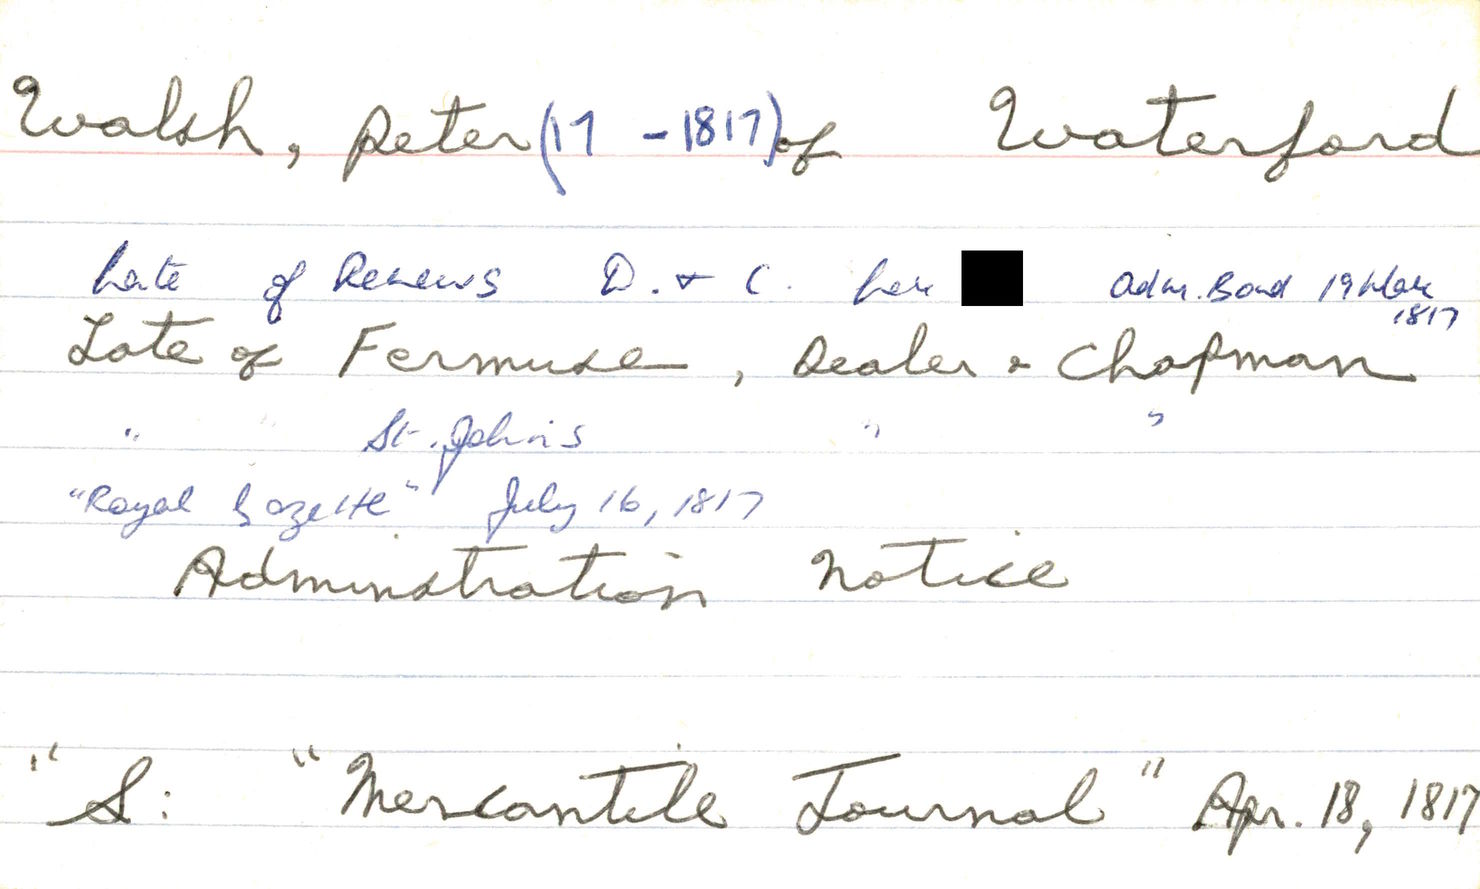 Walsh, Peter (17 - 1817) of Waterford
Late of Renews D. & C. Adm. Bond 19 Mar
1817
Late of Fermuse, Dealer & Chapman
" " St. John's " "
"Royal Gazette" July 16, 1817
Adminstration Notice
" S: "Mercantile Journal" Apr. 18, 1817